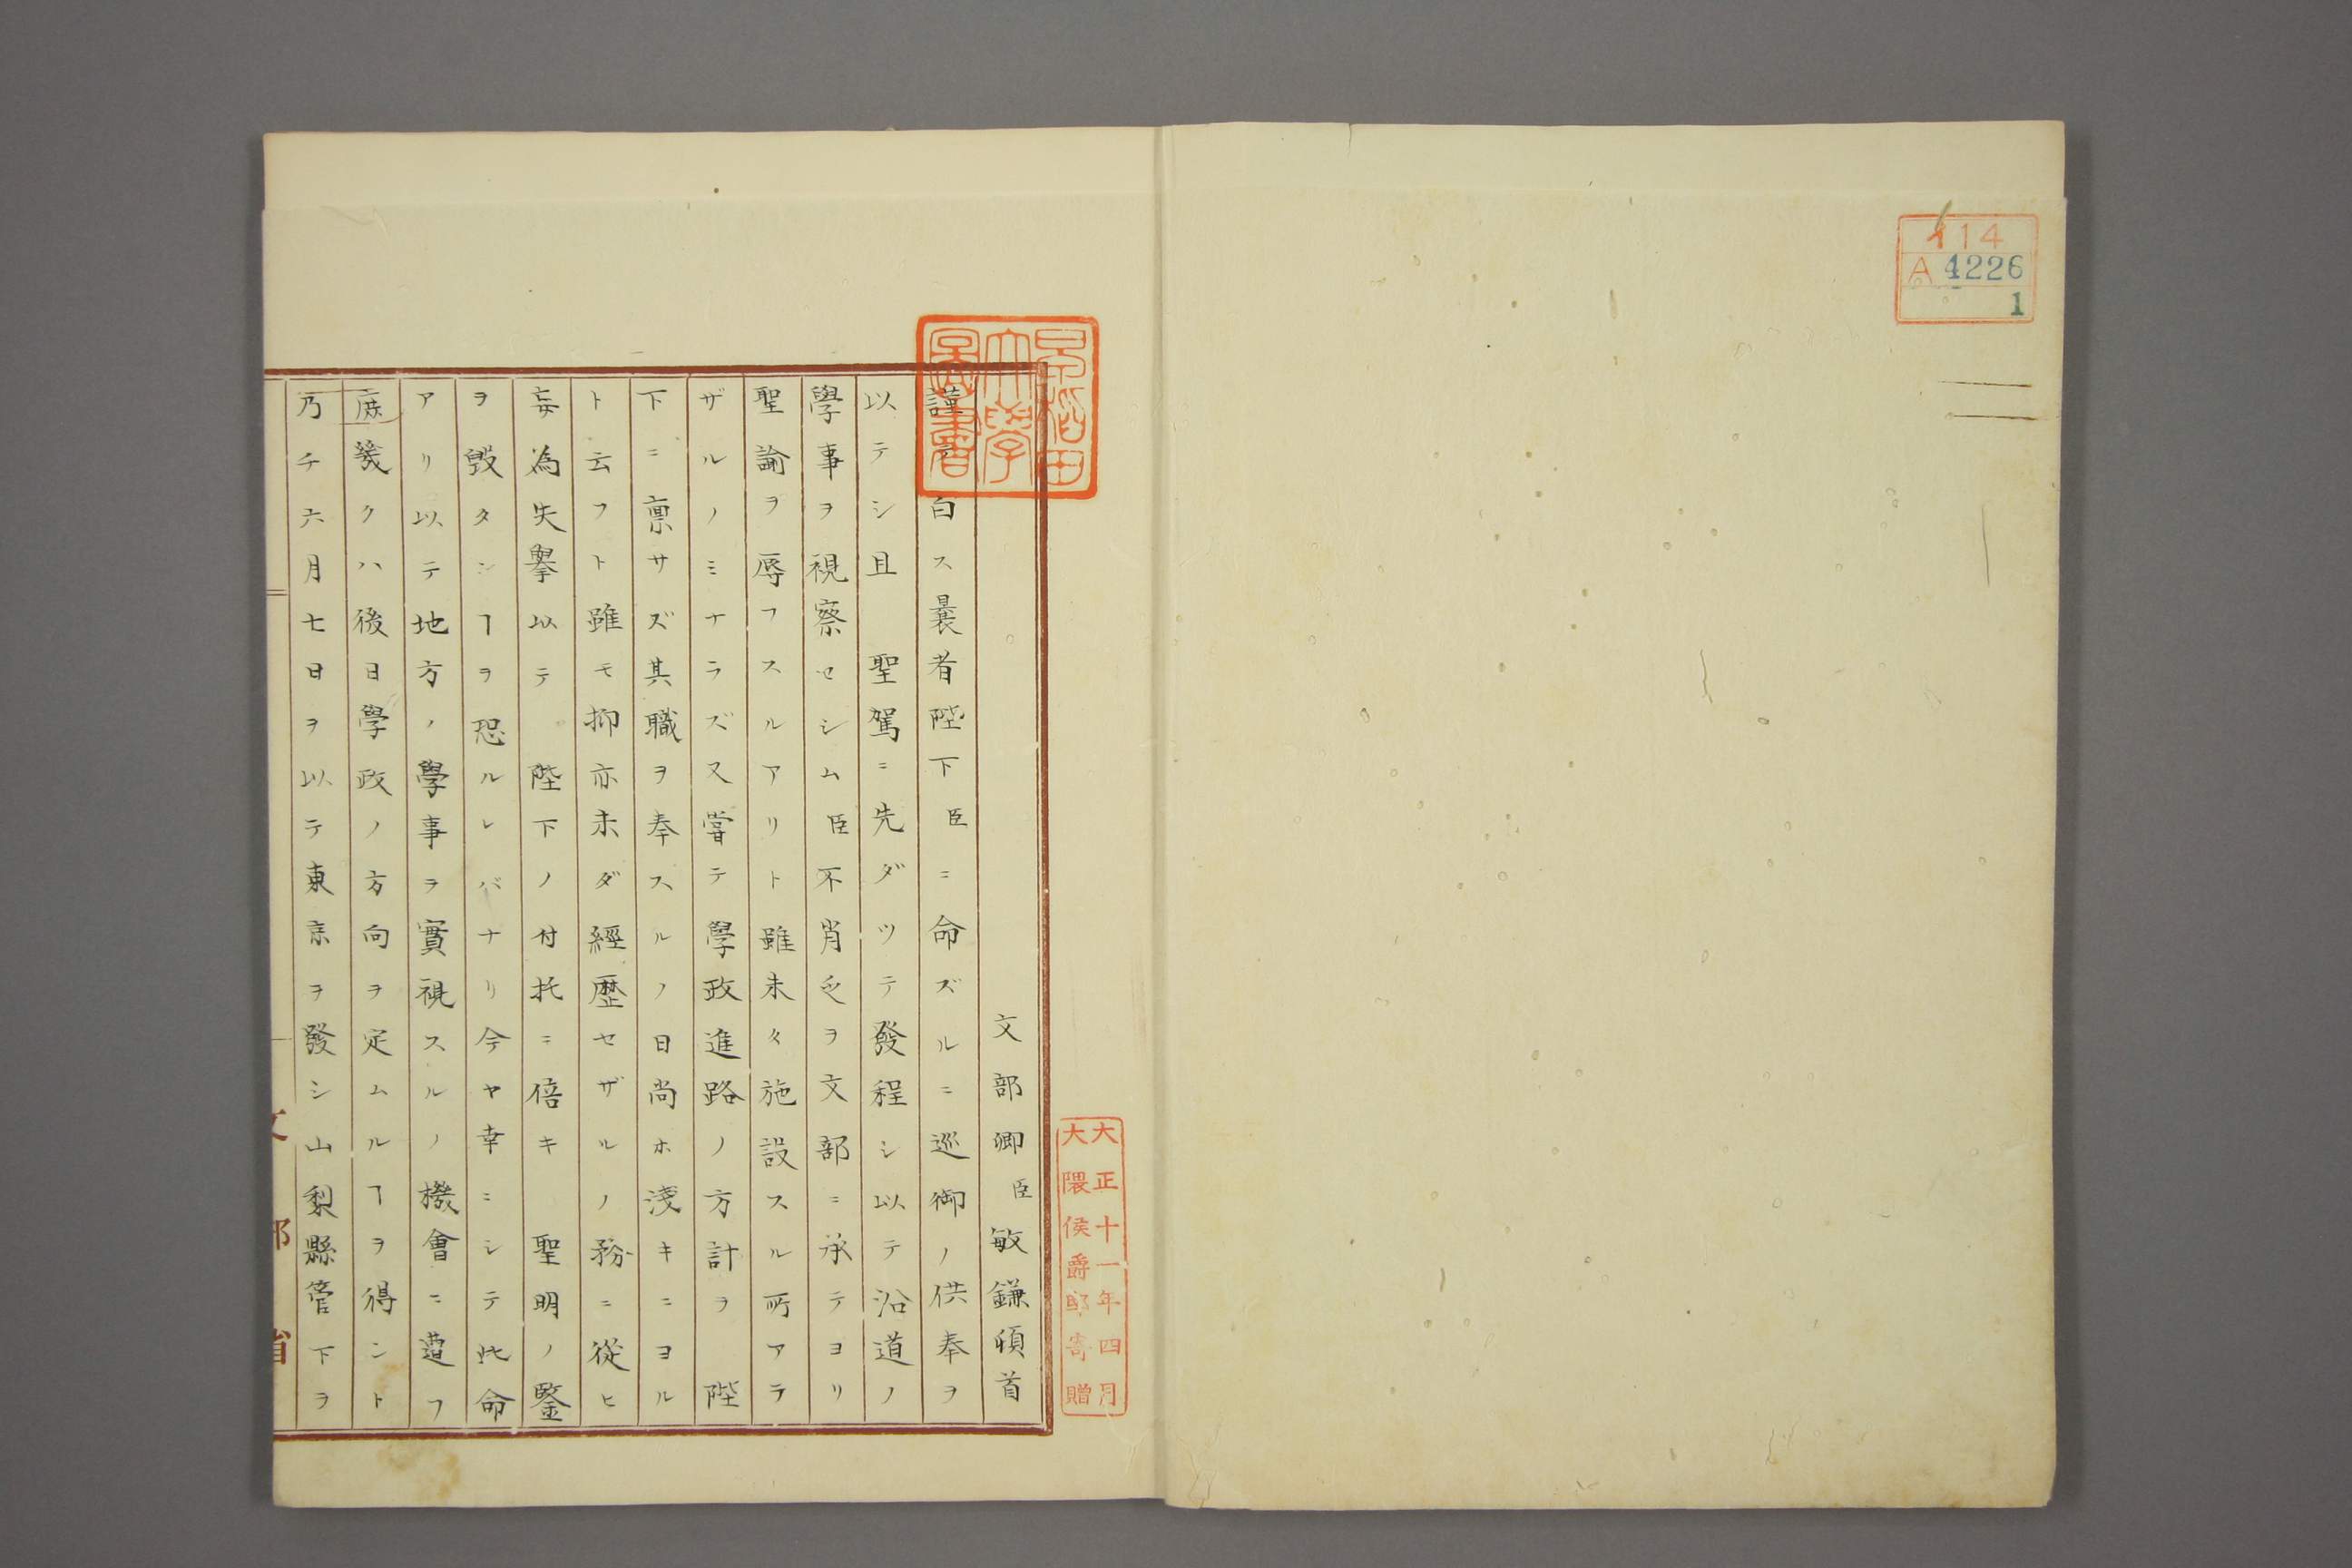 イ14
A 4226
1
早稲田
大學
圖書
大正十一年四月
大隈侯爵邸寄贈
文部卿臣敏鎌頓首
謹テ白ス曩者陛下臣ニ命ズルニ巡御ノ供奉ヲ
以テシ且　聖駕ニ先ダツテ發程シ以テ沿道ノ
學事ヲ視察セシム臣不肖乏ヲ文部ニ承テヨリ
聖諭ヲ辱フスルアリト雖未タ施設スル所アラ
ザルノミナラズ又嘗テ學政進路ノ方計ヲ　陛
下ニ稟サズ其職ヲ奉スルノ日尚ホ淺キニヨル
ト云フト雖モ抑亦未ダ經歴セザルノ務ニ從ヒ
妄為失擧以テ　陛下ノ付托ニ倍キ　聖明ノ鑒
ヲ毀タンヿヲ恐ルレバナリ今ヤ幸ニシテ此命
アリ以テ地方ノ學事ヲ實視スルノ機會ニ遭フ
庶幾クハ後日學政ノ方向ヲ定ムルヿヲ得ント
乃チ六月七日ヲ以テ東京ヲ發シ山梨縣管下ヲ
文部省